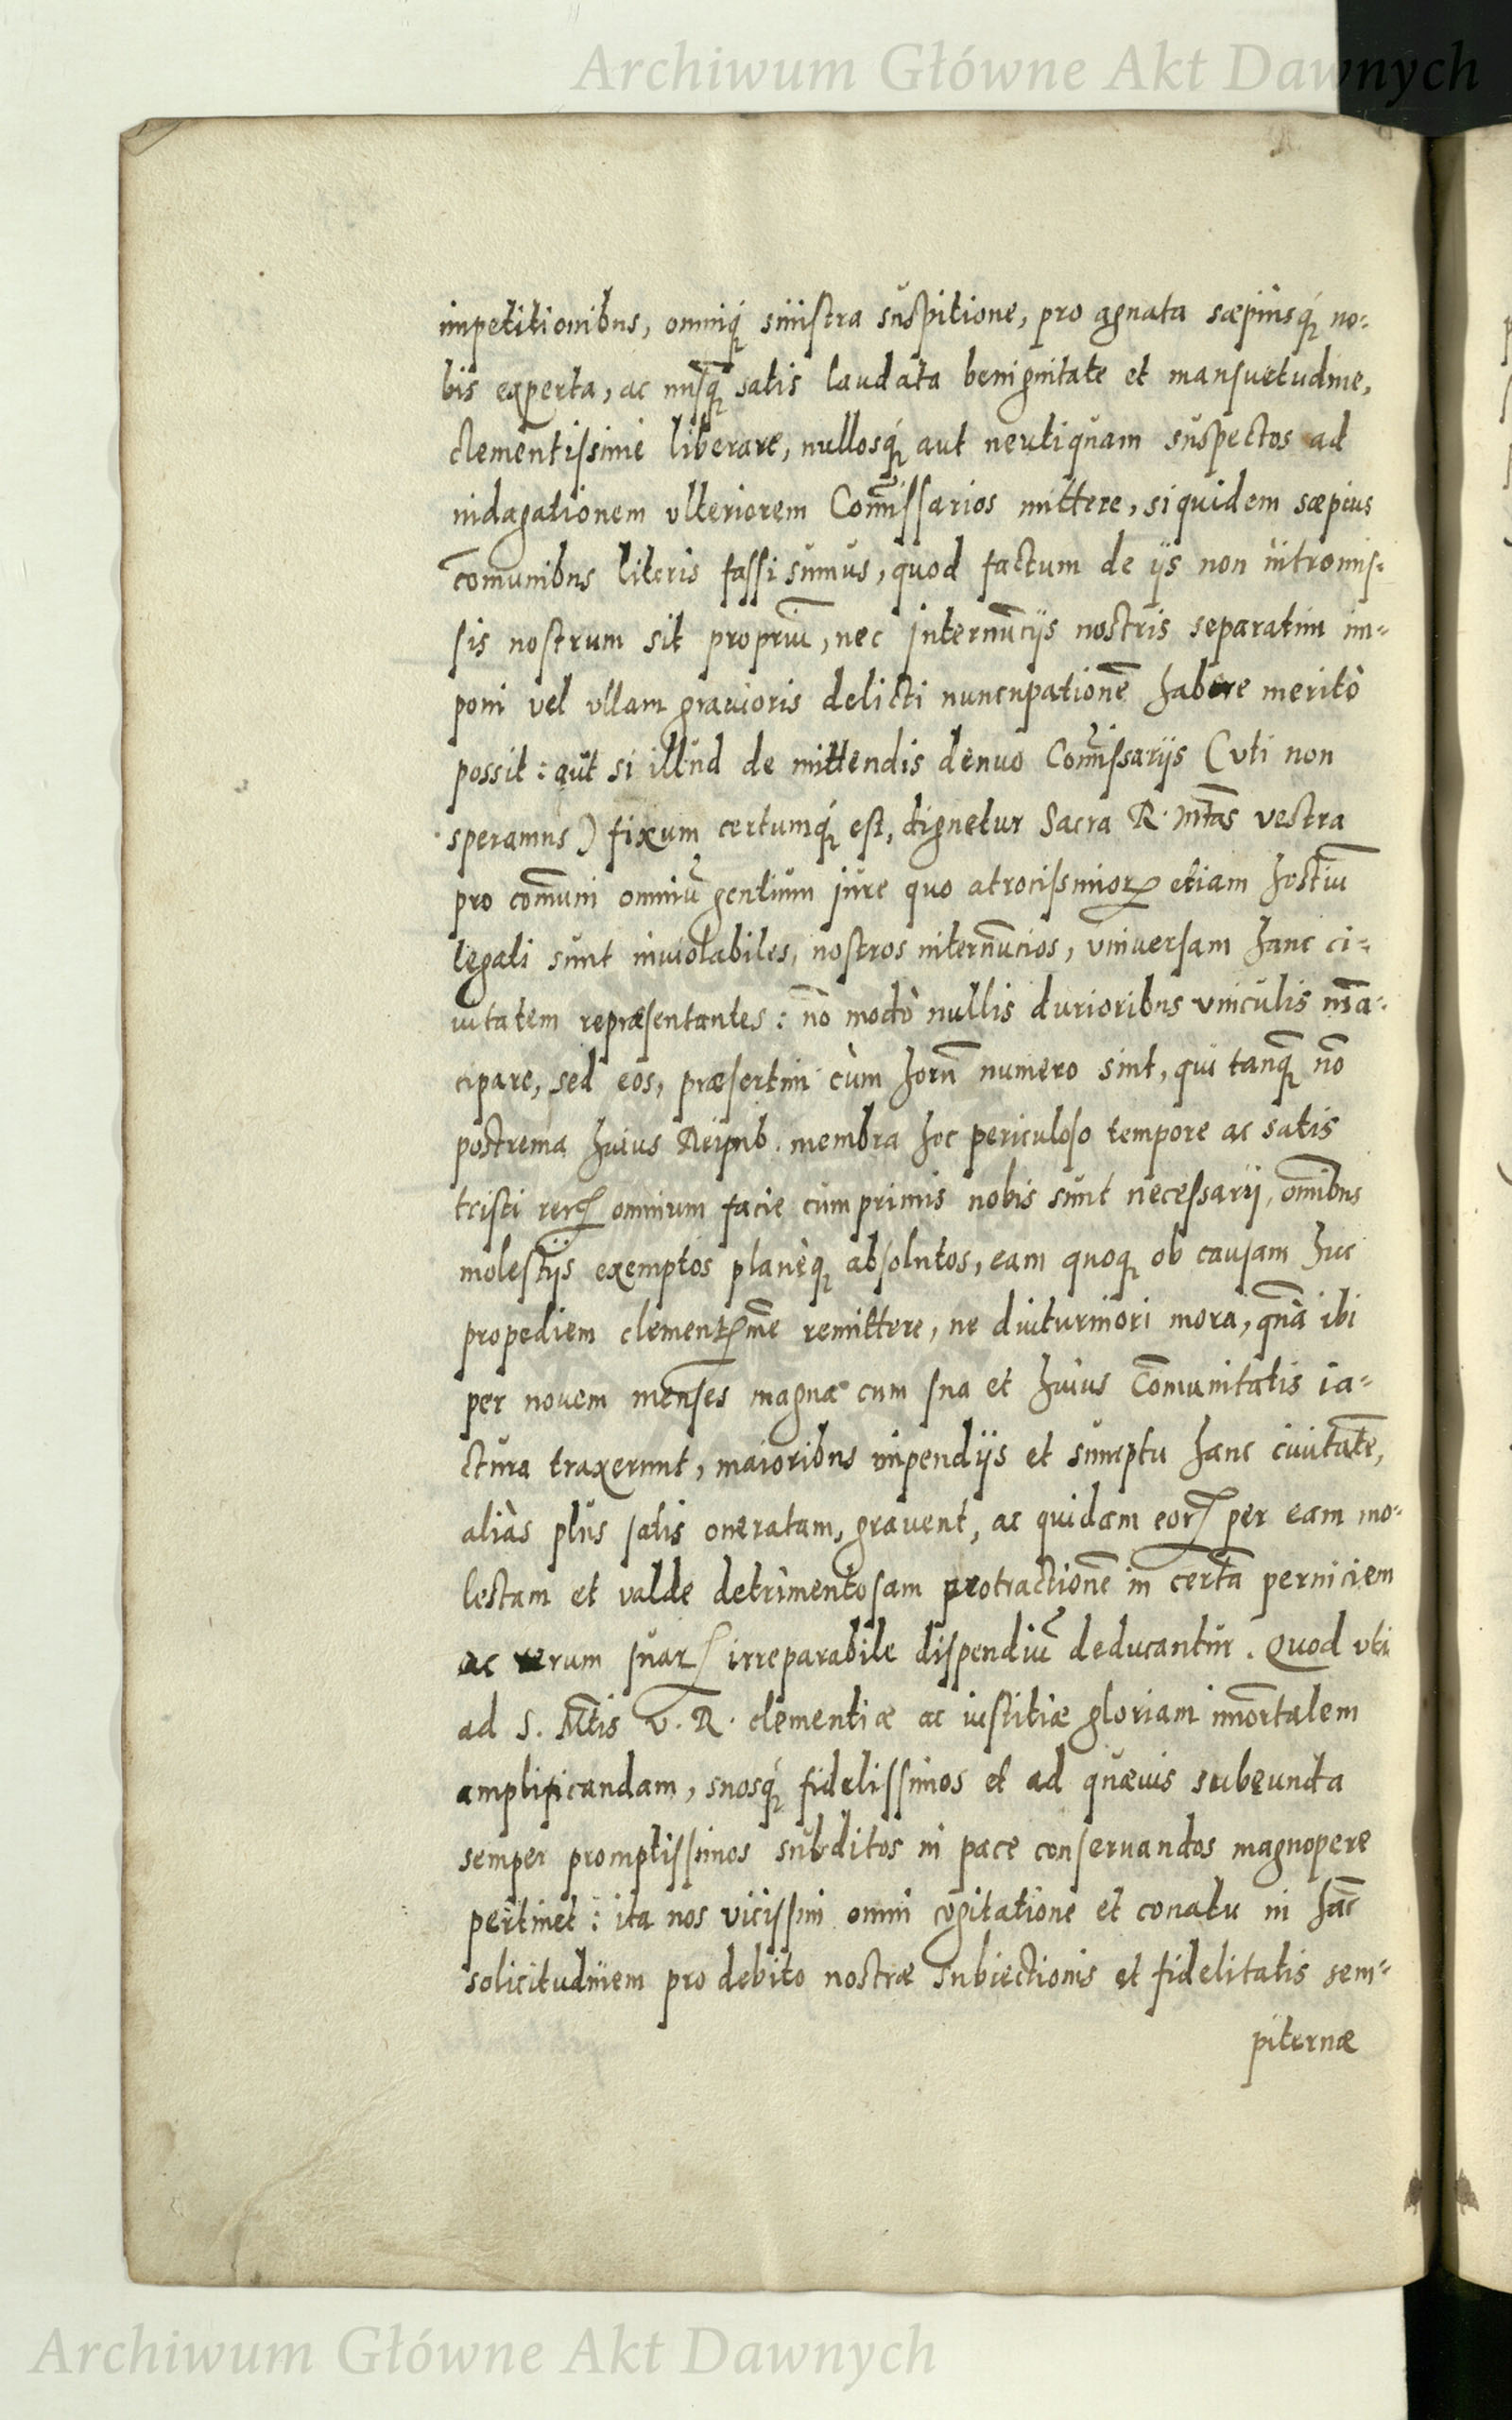 Archiwum Główne Akt Dawnych
impetitionibus, omniq́ sinistra suspitione, pro agnata sæpiusq́ no-
bis experta, ac nusq̃ satis laudata benignitate et mansuetudine,
clementissime liberare, nullosq́ aut neutiquam suspectos ad
indagationem vlteriorem Com̃issarios mittere, siquidem sæpius
com̃unibus literis fassi sumus, quod factum de ijs non intromis-
sis nostrum sit propriũ, nec internũcijs nostris separatim im-
poni vel ullam gravioris delicti nuncupationẽ habere meritò
possit: aut si illud de mittendis denuo Com̃issarijs (vti non
speramus) fixum certumq́ est, dignetur Sacra R. Mt̃as vestra
pro com̃uni omniũ gentium jure quo atrocissimorꝝ etiam hostiũ
legati sunt inviolabiles, nostros internũcios, vniversam hanc ci-
uitatem repræsentantes: nõ modò nullis durioribus vinculis mã-
cipare, sed eos, præsertim cùm horũ numero sint, qui tanq̃ nõ
postrema huius Reipub. membra hoc periculoso tempore ac satis
tristi rerꝝ omnium facie cum primis nobis sunt necessarij, om̃ibus
molestijs exemptos planèq absolutos, eam quoq ob causam huc
propediem clementꝫm̃e remittere, ne diuturniori mora, quã ibi
per novem menses magna cum sua et huius Com̃unitatis ia-
ctura traxerunt, maioribus impendijs et sumptu hanc ciuitatẽ,
aliàs plus satis oneratam, gravent, ac quidam eorꝝ per eam mo-
lestam et valde detrimentosam protractionẽ in certã perniciem
ac rerum suarꝝ irreparabile dispendiũ deducantur. Quod vti
ad S. Mt̃is V. R. clementiæ ac iustitiæ gloriam im̃ortalem
amplificandam, suosq́ fidelissimos et ad quævis subeunda
semper promptissimos subditos in pace conservandos magnopere
pertinet: ita nos vicissim omni cogitatione et conatu in hãc
solicitudinem pro debito nostræ subiectionis et fidelitatis sem-
piternæ
Archiwum Główne Akt Dawnych